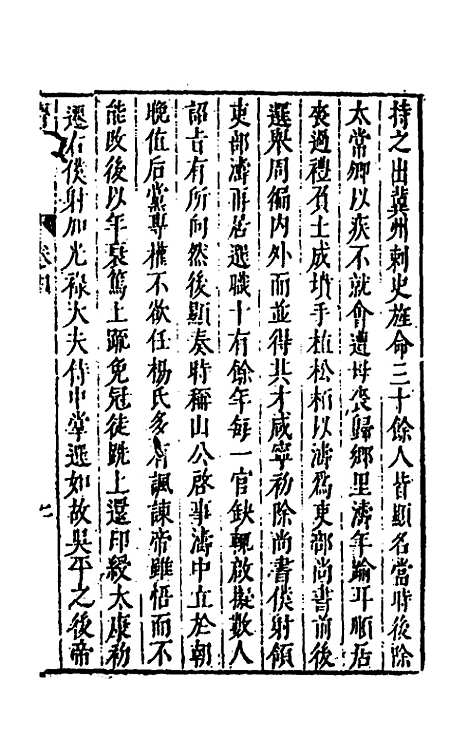 持之出冀州刺史旌命三十餘人皆顯名當時後除
太常卿以疾不就會遭母喪歸鄉里濤年踰耳順居
喪過禮負土成墳手植松柏以濤爲吏部尚書前後
選舉周徧內外而並得其才咸寧初除尚書僕射領
吏部濤再居選職十有餘年每一官缺輒啟擬數人
詔旨有所向然後顯奏時稱山公啓事濤中立於朝
晚值后黨專權不欲任楊氏多有諷諫帝雖悟而不
能改後以年衰篤上䟽免冠徒跣上還印綬太康初
遷右僕射加光祿大夫侍中掌選如故吳平之後帝
卷四
七